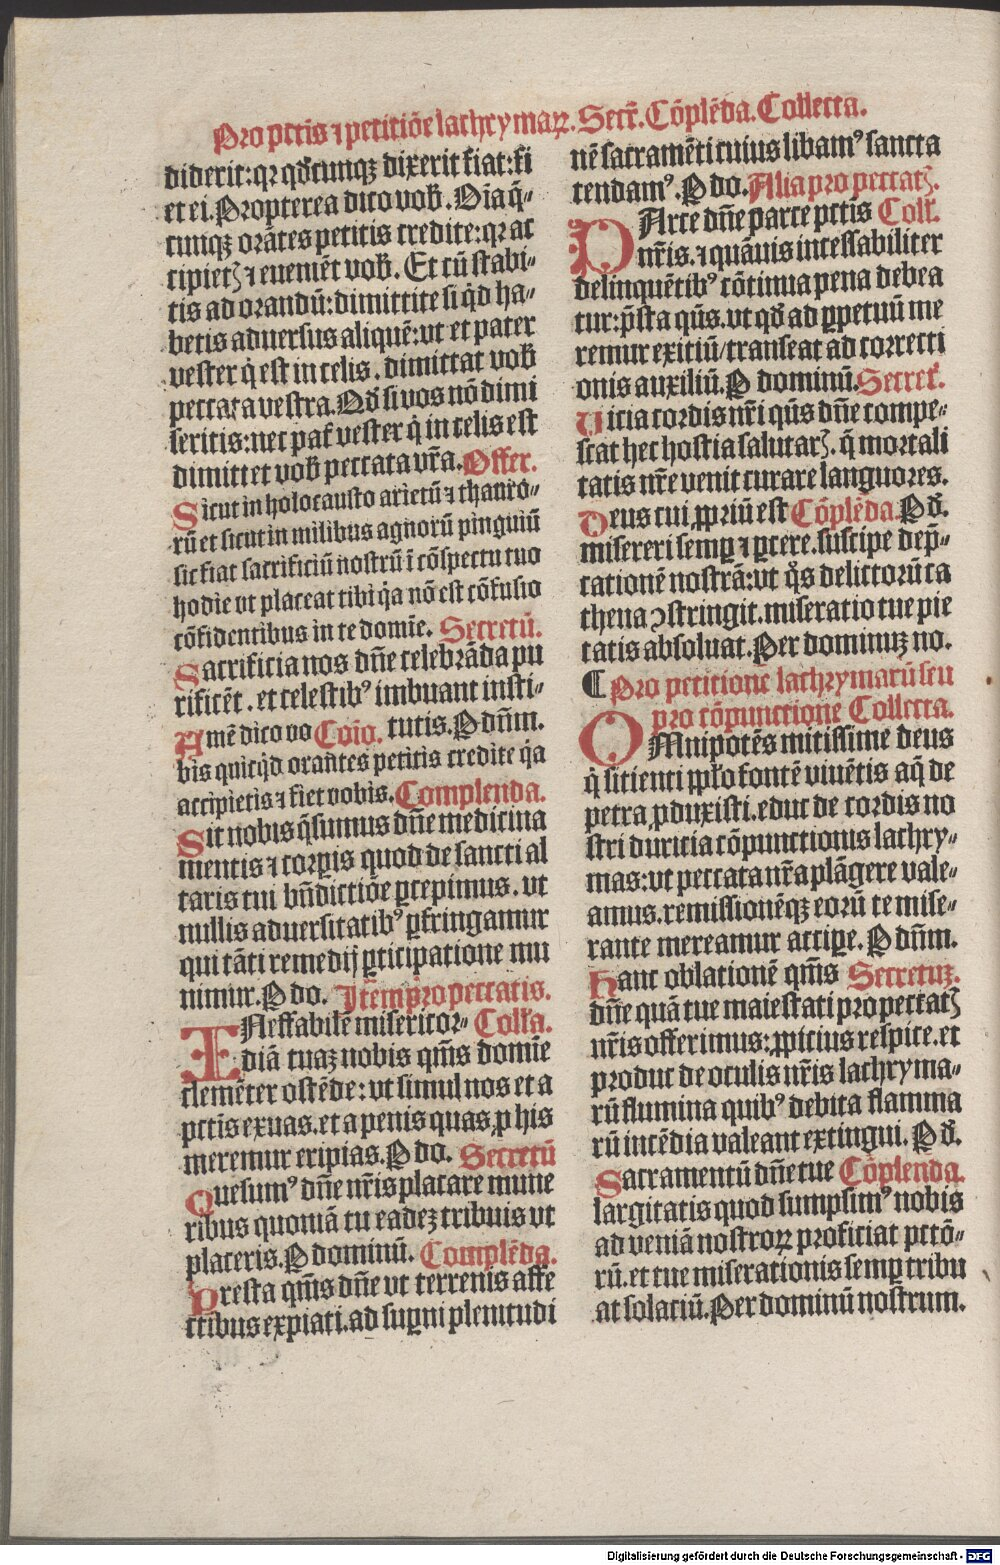 Pro pctīs ⁊ petitiōe lachrymaꝝ. Secr̄. Cōplēda. Collecta.
diderit: qꝛ qd̄cunqꝫ dixerit fiat: fi
et ei. Propterea dico vob̄. Oīa q̄-
cunqꝫ orātes petitis credite: qꝛ ac
cipietꝭ ⁊ euenēt vob̄. Et cū stabi-
tis ad orandū: dimittite si qd̄ ha-
betis aduersus aliquē: vt et pater
vester q̇ est in celis. dimittat vob̄
peccata vestra. Qd̄ si vos nō dimi
seritis: nec pat̄ vester q̇ in celis est
dimittet vob̄ peccata vr̄a. Offer.
Sicut in holocausto arietū ⁊ thauro-
rū et sicut in milibus agnorū pinguiū
sic fiat sacrificiū nostrū ī cōspectu tuo
hodie vt placeat tibi q̇a nō est cōfusio
cōfidentibus in te domīe. Secretū.
Sacrificia nos dn̄e celebrāda pu
rificēt. et celestibꝰ imbuant insti-
Amē dico vo Cōio. tutis. P dn̄m.
bis quicq̇d orantes petitis credite q̇a
accipietis ⁊ fiet vobis. Complenda.
Sit nobis q̄sumus dn̄e medicina
mentis ⁊ corꝑis quod de sancti al
taris tui bn̄dictiōe ꝑcepimus. vt
nullis aduersitatibꝰ ꝑfringamur
qui tāti remedij ꝑticipatione mu
nimur. P do. Item pro peccatis.
INeffabilē misericor- Coll̄a.
diā tuaꝫ nobis qm̄s domīe
clemēter ostēde: vt simul nos et a
pctīs exuas. et a penis quas ꝓ his
meremur eripias. P do. Secretū
Quesumꝰ dn̄e nr̄is placare mune
ribus quoniā tu eadeꝫ tribuis vt
placeris. P dominū. Complēda.
Presta qm̄s dn̄e vt terrenis affe
ctibus expiati. ad suꝑni plenitudi
nē sacramēti cuius libamꝰ sancta
tendamꝰ. P do. Alia pro peccatꝭ.
PArce dn̄e parce pctīs Coll̄.
nr̄is. ⁊ quāuis incessabiliter
delinquētibꝰ cōtinua pena debea
tur: p̄sta qūs. vt qd̄ ad ꝑpetuū me
remur exitiū / transeat ad correcti
onis auxiliū. P dominū. Secret̄.
Uicia cordis nr̄i qūs dn̄e compe-
scat hec hostia salutarꝭ. q̄ mortali
tatis nr̄e venit curare languores.
Deus cui ꝓpriū est Cōplēda. Qd̄.
misereri semꝑ ⁊ ꝑcere. suscipe dep̄-
cationē nostrā: vt q̇s delictorū ca
thena ꝯstringit. miseratio tue pie
tatis absoluat. Per dominuꝫ no.
¶ Pro petitione lachrymarū seu
pro cōpunctione Collecta.
OMnipotēs mitissime deus
q̇ sitienti ppl̄o fontē viuētis aq̄ de
petra ꝓduxisti. educ de cordis no
stri duricia cōpunctionis lachry-
mas: vt peccata nr̄a plāgere vale-
amus. remissionēqꝫ eorū te mise-
rante mereamur accipe. P dn̄m.
Hanc oblationē qm̄s Secretuꝫ.
dn̄e quā tue maiestati pro peccatꝭ
nr̄is offerimus: ꝓpicius respice. et
produc de oculis nr̄is lachryma-
rū flumina quibꝰ debita flamma
rū incēdia valeant extingui. P d̄.
Sacramentū dn̄e tue Cōplenda.
largitatis quod sumpsimꝰ nobis
ad veniā nostroꝝ proficiat pctō-
rū. et tue miserationis semꝑ tribu
at solaciū. Per dominū nostrum.
Digitalisierung gefördert durch die Deutsche Forschungsgemeinschaft - DFG